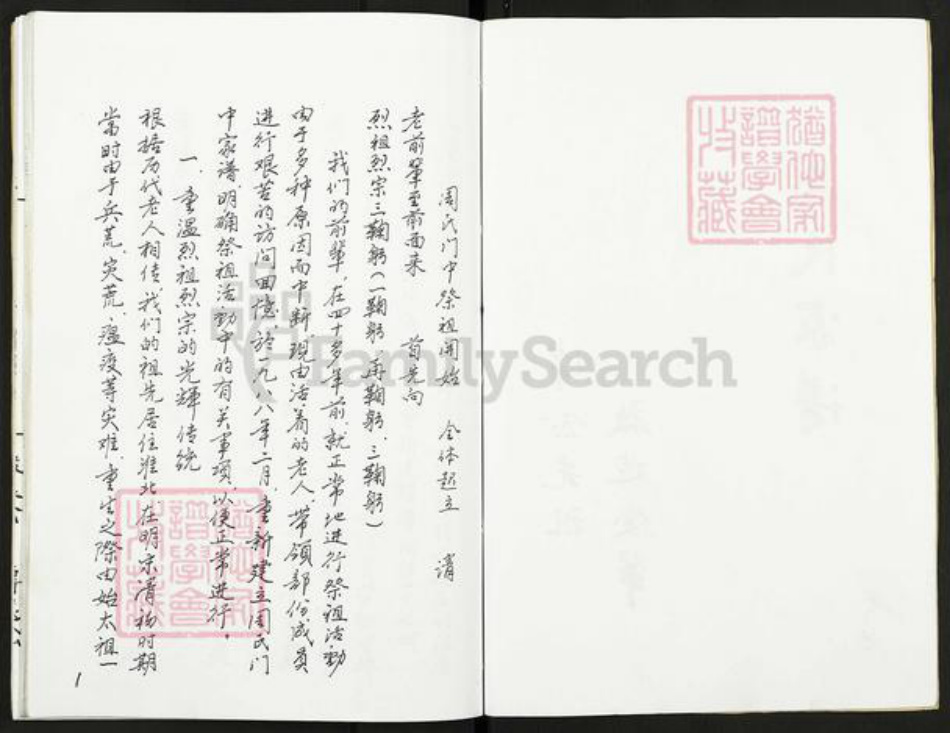 周氏门中祭祖開始 全体起立 请
老前輩至前面来 首先向
烈祖烈宗三鞠躬(一鞠躬 再鞠躬、三鞠躬)
我们的前輩,在四十多年前,就正常地進行祭祖活動
由于多种原因而中断,現由活着的老人,带領部份成員
進行艰苦的访问回憶 於一九八八年二月,重新建立周氏门
中家谱,明确祭祖活动中的有关事項,以便正常進行。
一、重溫烈祖烈宗的光輝传统
根据历代老人相传,我们的祖先居住淮北,在明末清初时期
当时由于兵荒、灾荒、瘟疫等灾难,重生之際由始太祖一
1
猶他家
譜學會
收藏
猶他家
譜學會
收藏
FamilySearch